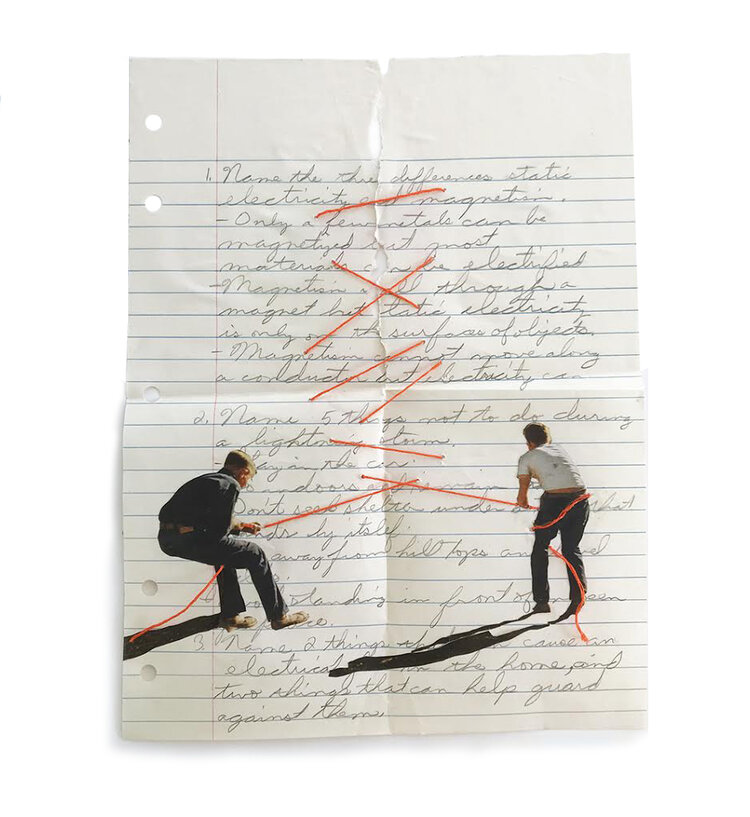 1. Name the thre differences static
electricity and magnetism.
- Only a few metals can be
magnetized but most
materials can be electrified
- Magnetism all through a
magnet but static electricity
is only on the surfaces of objects.
- Magnetism cannot move along
a conductor but electricity can
2. Name 5 things not to do during
a lightning storm.
in the
doors
Don't seek shelter under that
by itself.
away from hill tops and
standing in front of
3. Name 2 things that can cause an
electrical in the home, and
two things that can help guard
against them.